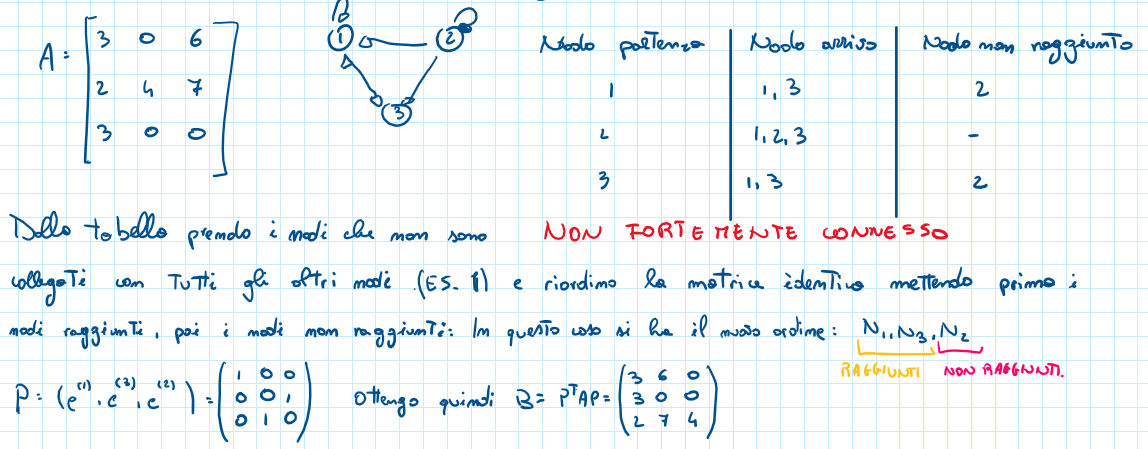 A = [3 0 6
2 4 7
3 0 0]
1 2
3
Nodo partenza | Nodo arrivo | Nodo non raggiunto
1 | 1, 3 | 2
2 | 1, 2, 3 | -
3 | 1, 3 | 2
Dalla tabella prendo i nodi che non sono
NON FORTEMENTE CONNESSO
collegati con tutti gli altri nodi (ES. 1) e riordino la matrice identica mettendo primo i
nodi raggiunti, poi i nodi non raggiunti: In questo caso si ha il nuovo ordine: N1, N3, N2
RAGGIUNTI NON RAGGIUNTI.
P = (e^(1), e^(3), e^(2)) = (1 0 0
0 0 1
0 1 0)
Ottengo quindi B = P^T A P = (3 6 0
3 0 0
2 7 4)